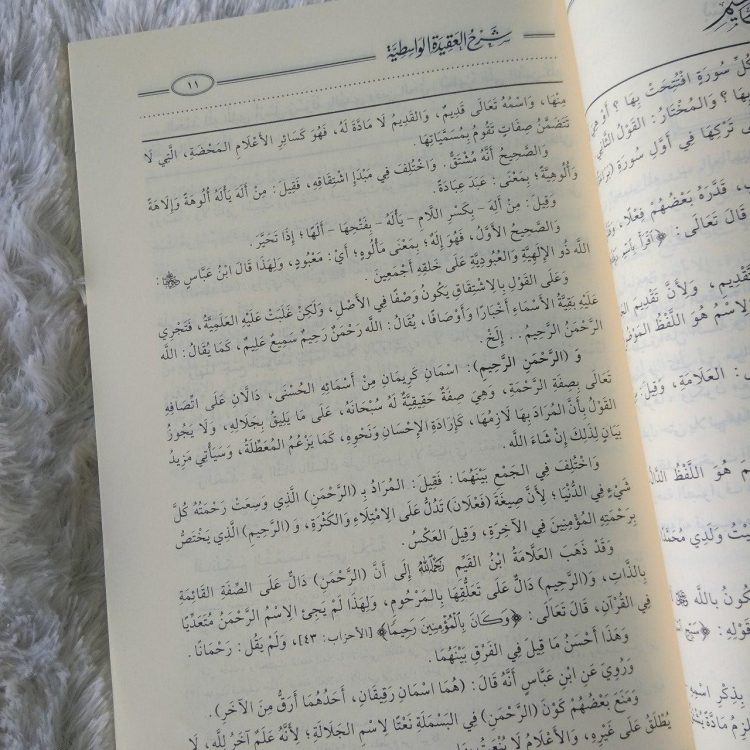 شَرْحُ العَقِيدَةِ الوَاسِطِيَّةِ
١١
مِنْهَا، وَاسْمُهُ تَعَالَى قَدِيمٌ، وَالقَدِيمُ لَا مَادَّةَ لَهُ، فَهُوَ كَسَائِرِ الأَعْلَامِ المَحْضَةِ، الَّتِي لَا
تَتَضَمَّنُ صِفَاتٍ تَقُومُ بِمُسَمَّيَاتِهَا.
وَالصَّحِيحُ أَنَّهُ مُشْتَقٌّ. وَاخْتُلِفَ فِي مَبْدَإِ اشْتِقَاقِهِ، فَقِيلَ: مِنْ أَلَهَ يَأْلَهُ أُلُوهَةً وَإِلَاهَةً
وَأُلُوهِيَّةً؛ بِمَعْنَى: عَبَدَ عِبَادَةً.
وَقِيلَ: مِنْ أَلِهَ - بِكَسْرِ اللَّامِ - يَأْلَهُ - بِفَتْحِهَا - أَلَهًا؛ إِذَا تَحَيَّرَ.
وَالصَّحِيحُ الأَوَّلُ، فَهُوَ إِلَهٌ؛ بِمَعْنَى مَأْلُوهٍ؛ أَيْ: مَعْبُودٍ، وَلِهَذَا قَالَ ابْنُ عَبَّاسٍ ﵄:
اللَّهُ ذُو الإِلَهِيَّةِ وَالعُبُودِيَّةِ عَلَى خَلْقِهِ أَجْمَعِينَ.
وَعَلَى القَوْلِ بِالِاشْتِقَاقِ يَكُونُ وَصْفًا فِي الأَصْلِ، وَلَكِنْ غَلَبَتْ عَلَيْهِ العَلَمِيَّةُ، فَتَجْرِي
عَلَيْهِ بَقِيَّةُ الأَسْمَاءِ أَخْبَارًا وَأَوْصَافًا، يُقَالُ: اللَّه رَحْمَنٌ رَحِيمٌ سَمِيعٌ عَلِيمٌ، كَمَا يُقَالُ: اللَّه
الرَّحْمَنُ الرَّحِيمُ.. إِلَخْ.
وَ (الرَّحْمَنِ الرَّحِيمِ): اسْمَانِ كَرِيمَانِ مِنْ أَسْمَائِهِ الحُسْنَى، دَالَّانِ عَلَى اتِّصَافِهِ
تَعَالَى بِصِفَةِ الرَّحْمَةِ، وَهِيَ صِفَةٌ حَقِيقِيَّةٌ لَهُ سُبْحَانَهُ، عَلَى مَا يَلِيقُ بِجَلَالِهِ، وَلَا يَجُوزُ
القَوْلُ بِأَنَّ المُرَادَ بِهَا لَازِمُهَا، كَإِرَادَةِ الإِحْسَانِ وَنَحْوِهِ، كَمَا يَزْعُمُ المُعَطِّلَةُ، وَسَيَأْتِي مَزِيدُ
بَيَانٍ لِذَلِكَ إِنْ شَاءَ اللَّه.
وَاخْتُلِفَ فِي الجَمْعِ بَيْنَهُمَا: فَقِيلَ: المُرَادُ بِـ (الرَّحْمَنِ) الَّذِي وَسِعَتْ رَحْمَتُهُ كُلَّ
شَيْءٍ فِي الدُّنْيَا؛ لِأَنَّ صِيغَةَ (فَعْلَانَ) تَدُلُّ عَلَى الِامْتِلَاءِ وَالكَثْرَةِ، وَ (الرَّحِيمِ) الَّذِي يَخْتَصُّ
بِرَحْمَتِهِ المُؤْمِنِينَ فِي الآخِرَةِ، وَقِيلَ العَكْسُ.
وَقَدْ ذَهَبَ العَلَّامَةُ ابْنُ القَيِّمِ رَحِمَهُ اللَّهُ إِلَى أَنَّ (الرَّحْمَنَ) دَالٌّ عَلَى الصِّفَةِ القَائِمَةِ
بِالذَّاتِ، وَ (الرَّحِيمَ) دَالٌّ عَلَى تَعَلُّقِهَا بِالمَرْحُومِ، وَلِهَذَا لَمْ يَجِئِ الِاسْمُ الرَّحْمَنُ مُتَعَدِّيًا
فِي القُرْآنِ، قَالَ تَعَالَى: ﴿وَكَانَ بِالْمُؤْمِنِينَ رَحِيمًا﴾ [الأحزاب: ٤٣]، وَلَمْ يَقُلْ: رَحْمَانًا.
وَهَذَا أَحْسَنُ مَا قِيلَ فِي الفَرْقِ بَيْنَهُمَا.
وَرُوِيَ عَنِ ابْنِ عَبَّاسٍ أَنَّهُ قَالَ: (هُمَا اسْمَانِ رَقِيقَانِ، أَحَدُهُمَا أَرَقُّ مِنَ الآخَرِ).
وَمَنَعَ بَعْضُهُمْ كَوْنَ (الرَّحْمَنِ) فِي البَسْمَلَةِ نَعْتًا لِاسْمِ الجَلَالَةِ؛ لِأَنَّهُ عَلَمٌ آخَرُ لِلَّهِ، لَا
يُطْلَقُ عَلَى غَيْرِهِ، وَالأَعْلَامُ لَا يُنْعَتُ بِهَا.
كُلِّ سُورَةٍ افْتُتِحَتْ بِهَا؟ أَوْ هِيَ
بِهَا؟ وَالمُخْتَارُ: القَوْلُ الثَّانِي
تَرْكِهَا فِي أَوَّلِ سُورَةِ
قَدَّرَهُ بَعْضُهُمْ فِعْلًا،
قَالَ تَعَالَى: ﴿اقْرَأْ بِاسْمِ
التَّقْدِيمِ، وَلِأَنَّ تَقْدِيمَ
الِاسْمِ هُوَ اللَّفْظُ
: العَلَامَةِ، وَقِيلَ
هُوَ اللَّفْظُ
وَلَدِي مُحَمَّدًا
بِاللَّه
قَوْلِهِ: ﴿سَبِّحِ
بِذِكْرِ اسْمِهِ